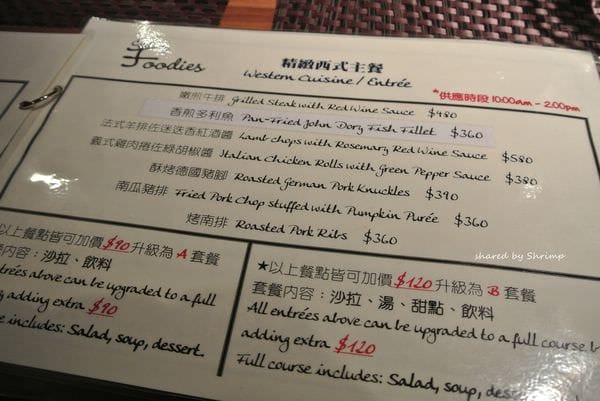 Foodies
精緻西式主餐
Western Cuisine / Entrée
*供應時段 10:00am - 2:00pm
嫩煎牛排 Grilled Steak with Red Wine Sauce $480
香煎多利魚 Pan-Fried John Dory Fish Fillet $360
法式羊排佐迷迭香紅酒醬 Lamb chops with Rosemary Red Wine Sauce $580
義式雞肉捲佐綠胡椒醬 Italian Chicken Rolls with Green Pepper Sauce $380
酥烤德國豬腳 Roasted German Pork Knuckles $390
南瓜豬排 Fried Pork Chop stuffed with Pumpkin Purée $360
烤南排 Roasted Pork Ribs $360
shared by Shrimp
以上餐點皆可加價 $90 升級為 A 套餐
內容：沙拉、飲料
entrées above can be upgraded to a full
adding extra $90
includes: Salad, soup, dessert.
★以上餐點皆可加價 $120 升級為 B 套餐
套餐內容：沙拉、湯、甜點、飲料
All entrées above can be upgraded to a full course b
adding extra $120
Full course includes: Salad, soup, des